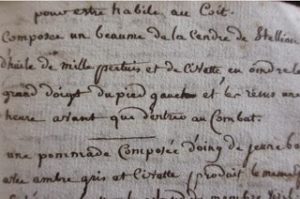 pour estre habile au Coit.
Composez un beaume de la Cendre de Stellion
d'huile de mille pertuis et de Civette, en oindre le
grand doigt du pied gauche et les reins une
heure avant que d'entrer au Combat.
une pommade Composée d'oing de jeune bouc
avec ambre gris et Civette produit le mesme